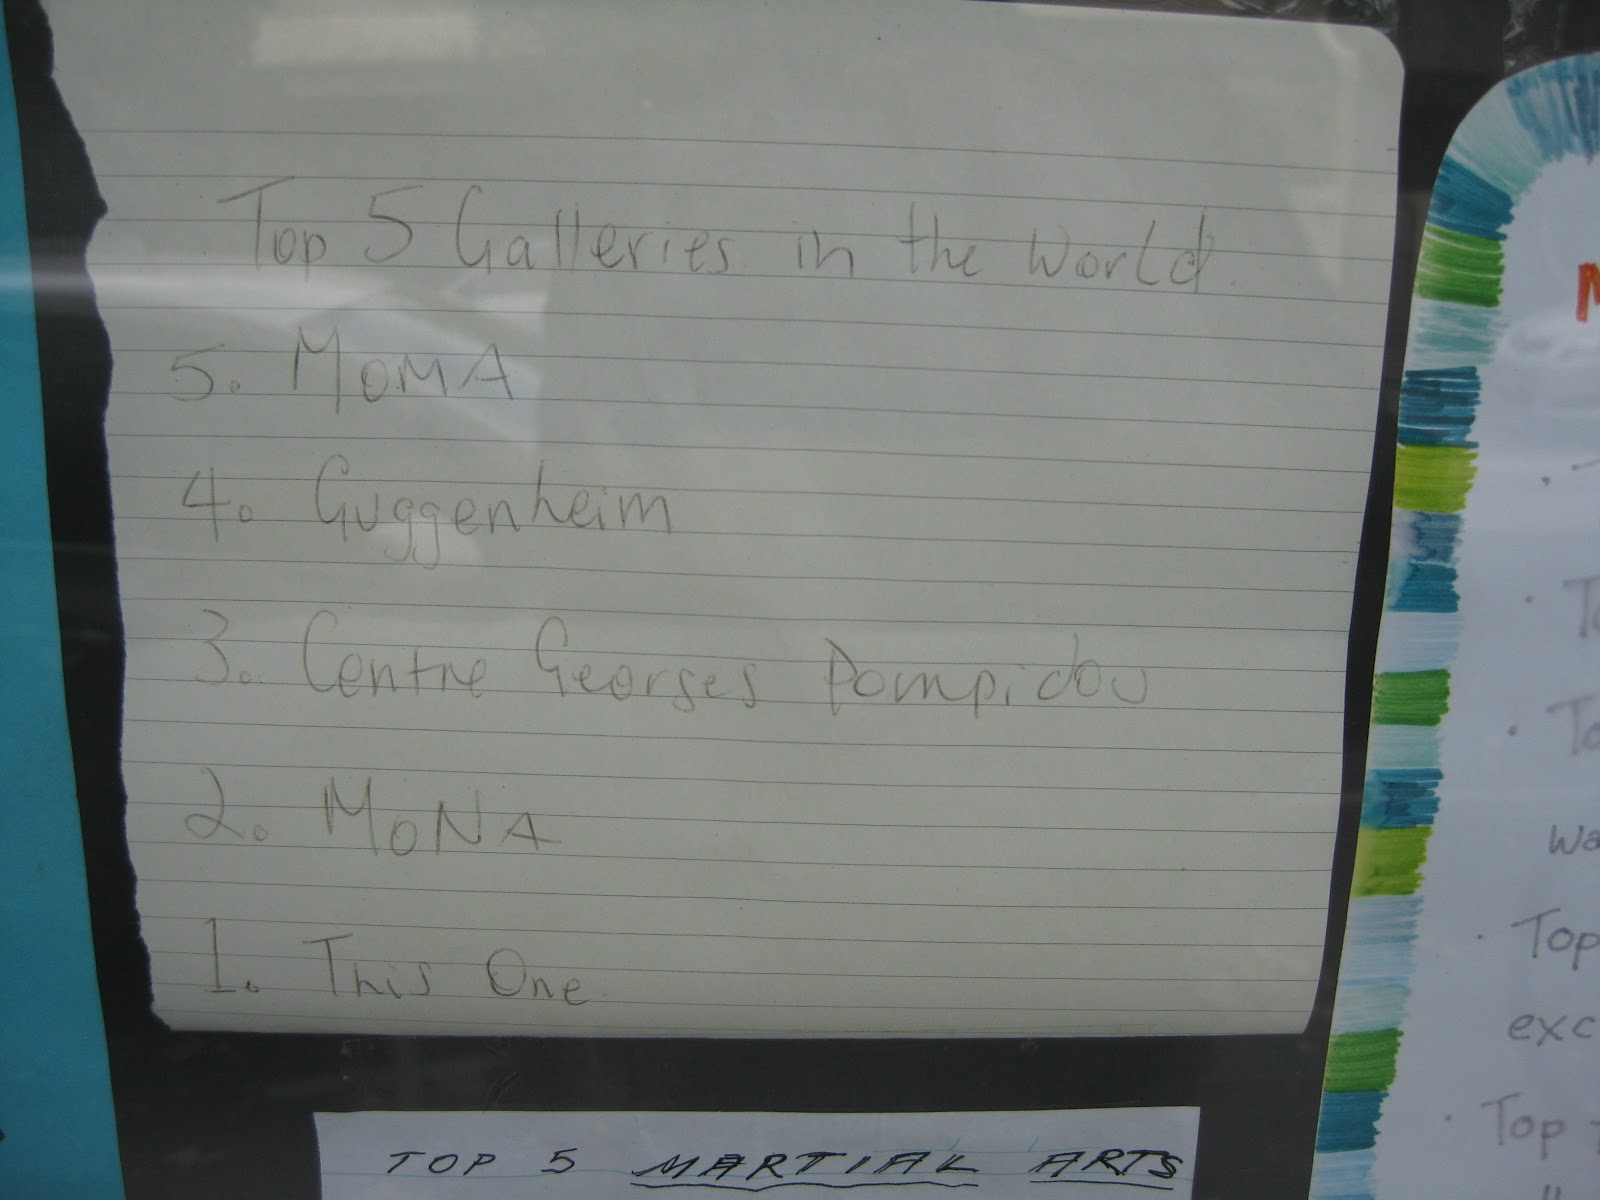 Top 5 Galleries in the World.
5. MOMA
4. Guggenheim
3. Centre Georges Pompidou
2. MONA
1. This One
TOP 5 MARTIAL ARTS
Top
Top